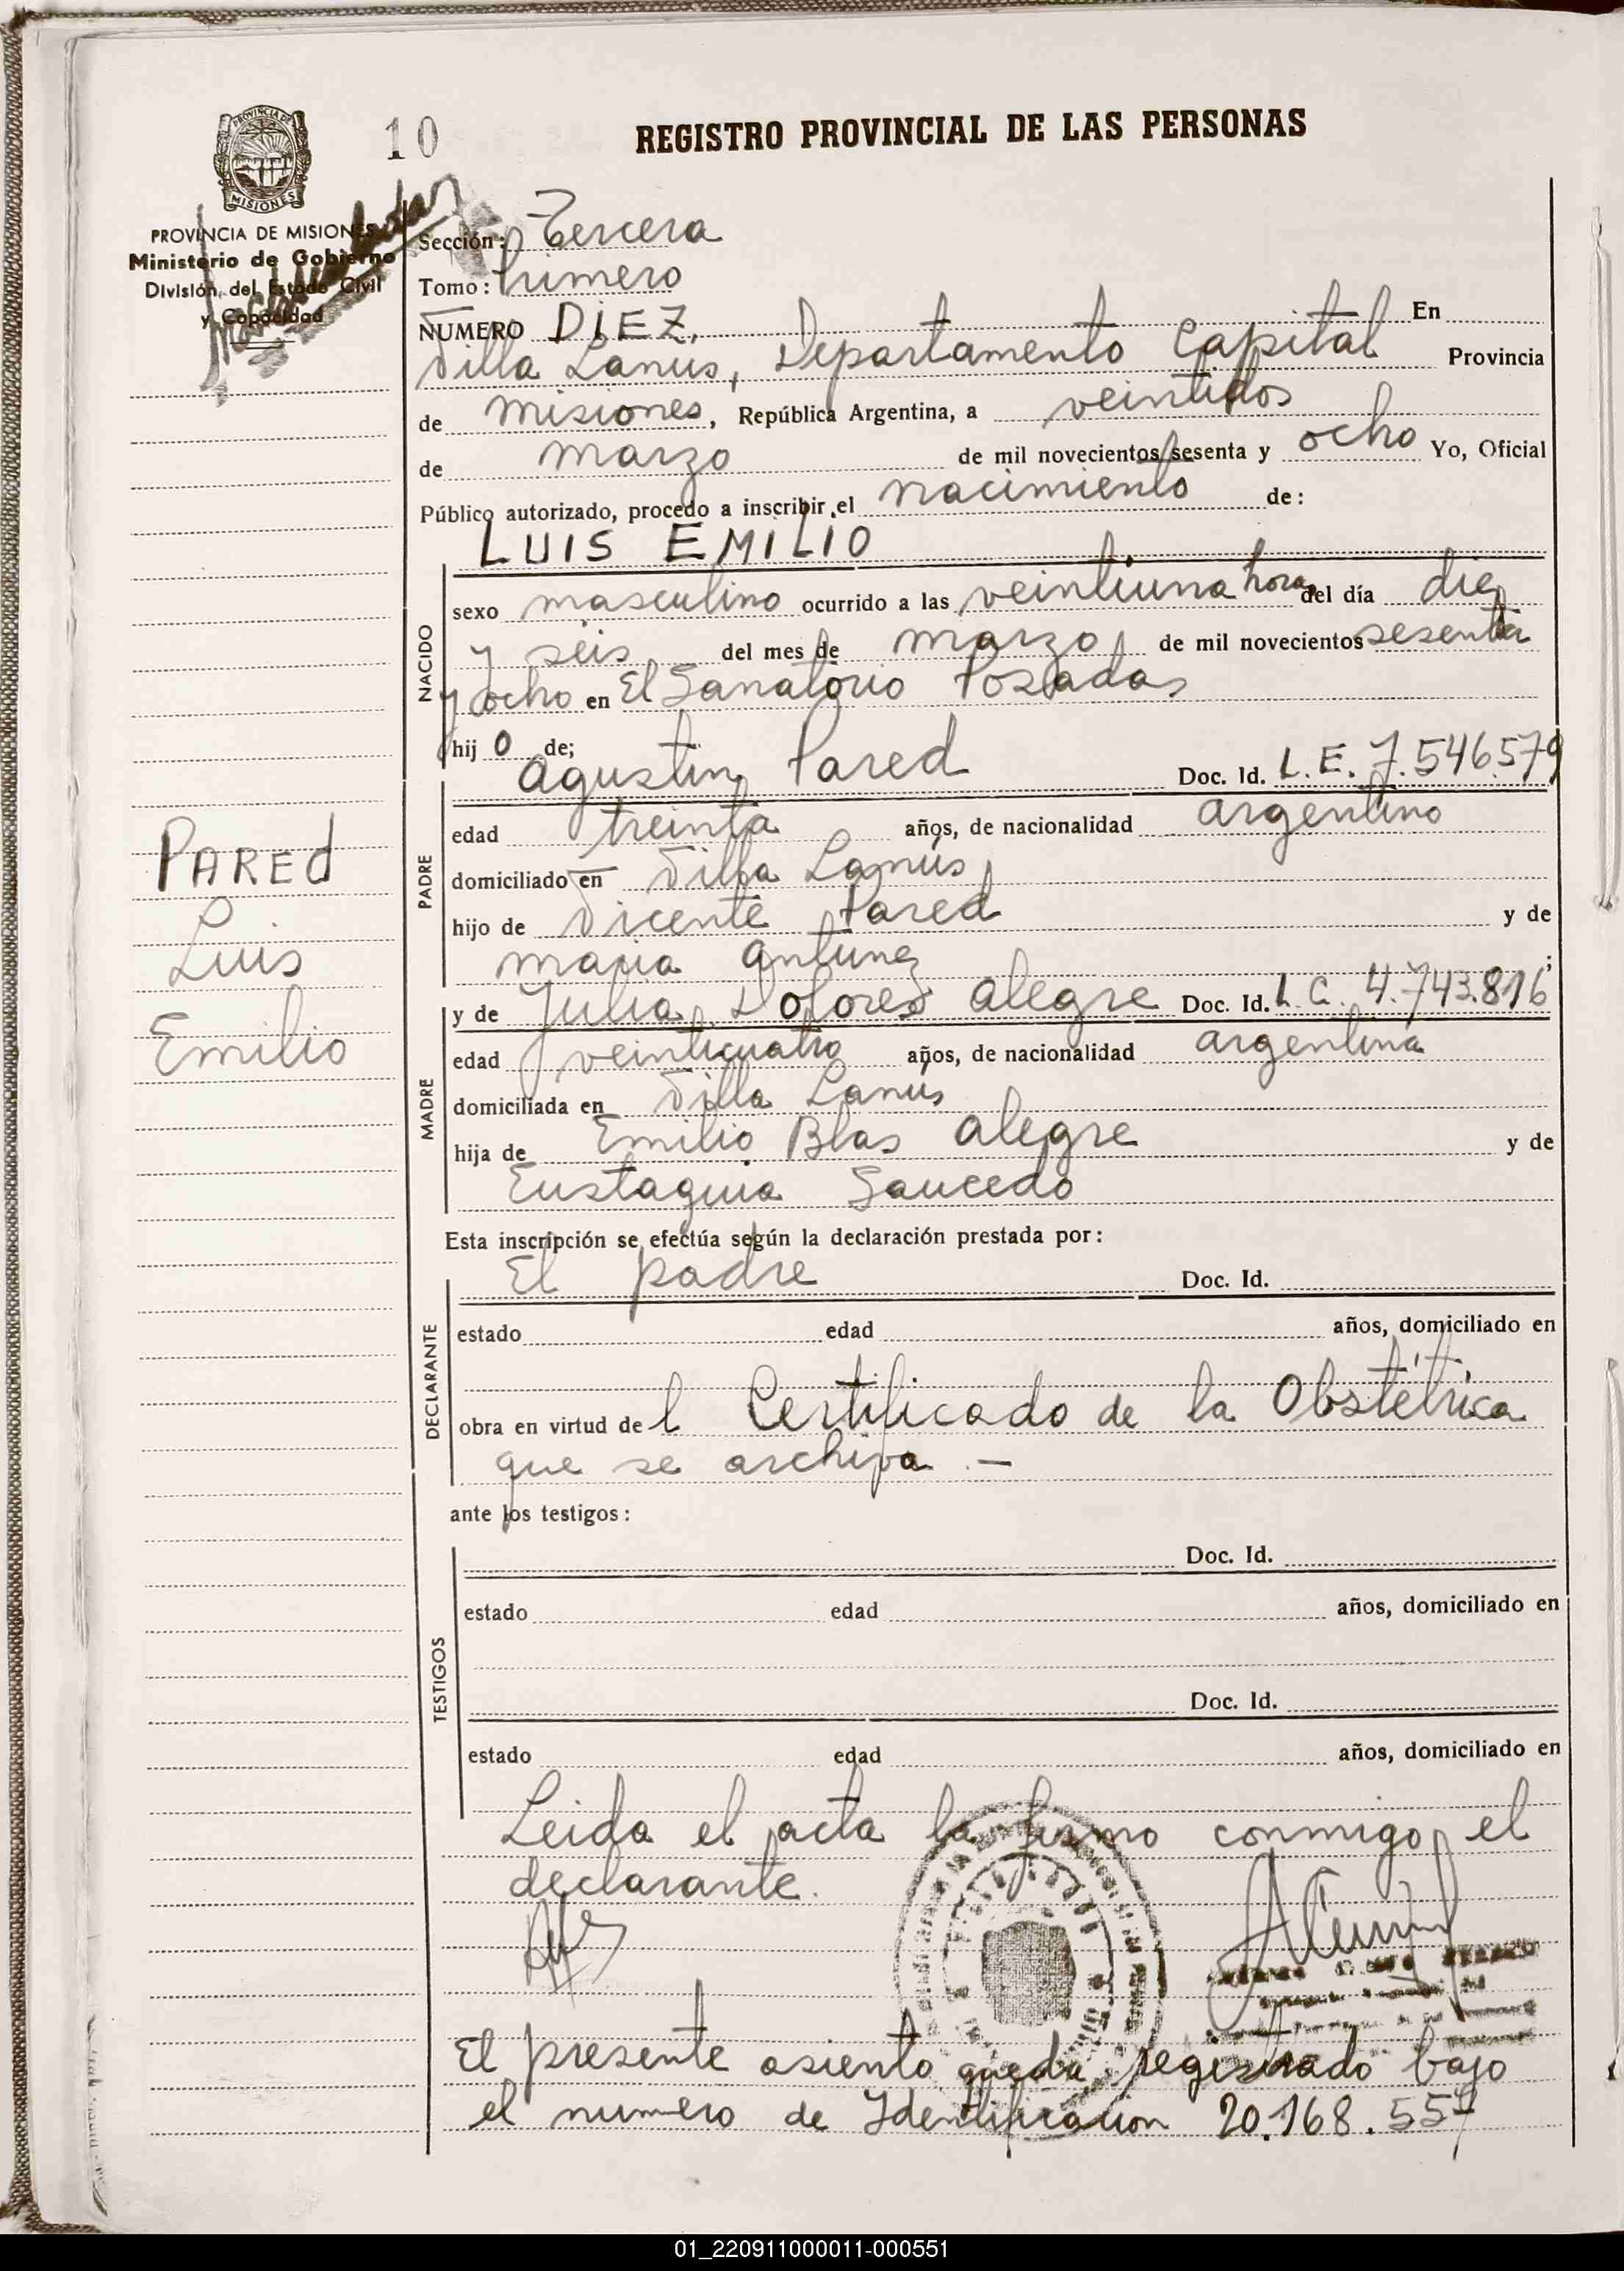 10
REGISTRO PROVINCIAL DE LAS PERSONAS
PROVINCIA DE
MISIONES
PROVINCIA DE MISIONES
Ministerio de Gobierno
División del Estado Civil
y Capacidad
Sección: Tercera
Tomo: Primero
NUMERO DIEZ. En
Villa Lanus, Departamento Capital Provincia
de Misiones, República Argentina, a veintidos
de marzo de mil novecientos sesenta y ocho Yo, Oficial
Público autorizado, procedo a inscribir el nacimiento de:
LUIS EMILIO
NACIDO
sexo masculino ocurrido a las veintiuna hora del día diez
y seis del mes de marzo de mil novecientos sesenta
y ocho en El Sanatorio Posadas
hij o de;
Agustin Pared Doc. Id. L.E. 7.546.579
PADRE
edad treinta años, de nacionalidad argentino
domiciliado en Villa Lanús
hijo de Vicente Pared y de
maria Antunez ;
y de Julia Dolores Alegre Doc. Id. L.C. 4.743.816
MADRE
edad veinticuatro años, de nacionalidad argentina
domiciliada en Villa Lanús
hija de Emilio Blas Alegre y de
Eustaquia Saucedo
PARED
Luis
Emilio
Esta inscripción se efectúa según la declaración prestada por:
El padre Doc. Id.
DECLARANTE
estado edad años, domiciliado en
obra en virtud de l Certificado de la Obstétrica
que se archiva.-
ante los testigos:
TESTIGOS
Doc. Id.
estado edad años, domiciliado en
Doc. Id.
estado edad años, domiciliado en
Leida el acta la firmo conmigo el
declarante.
El presente asiento queda registrado bajo
el numero de Identificacion 20.168.557
01_220911000011-000551